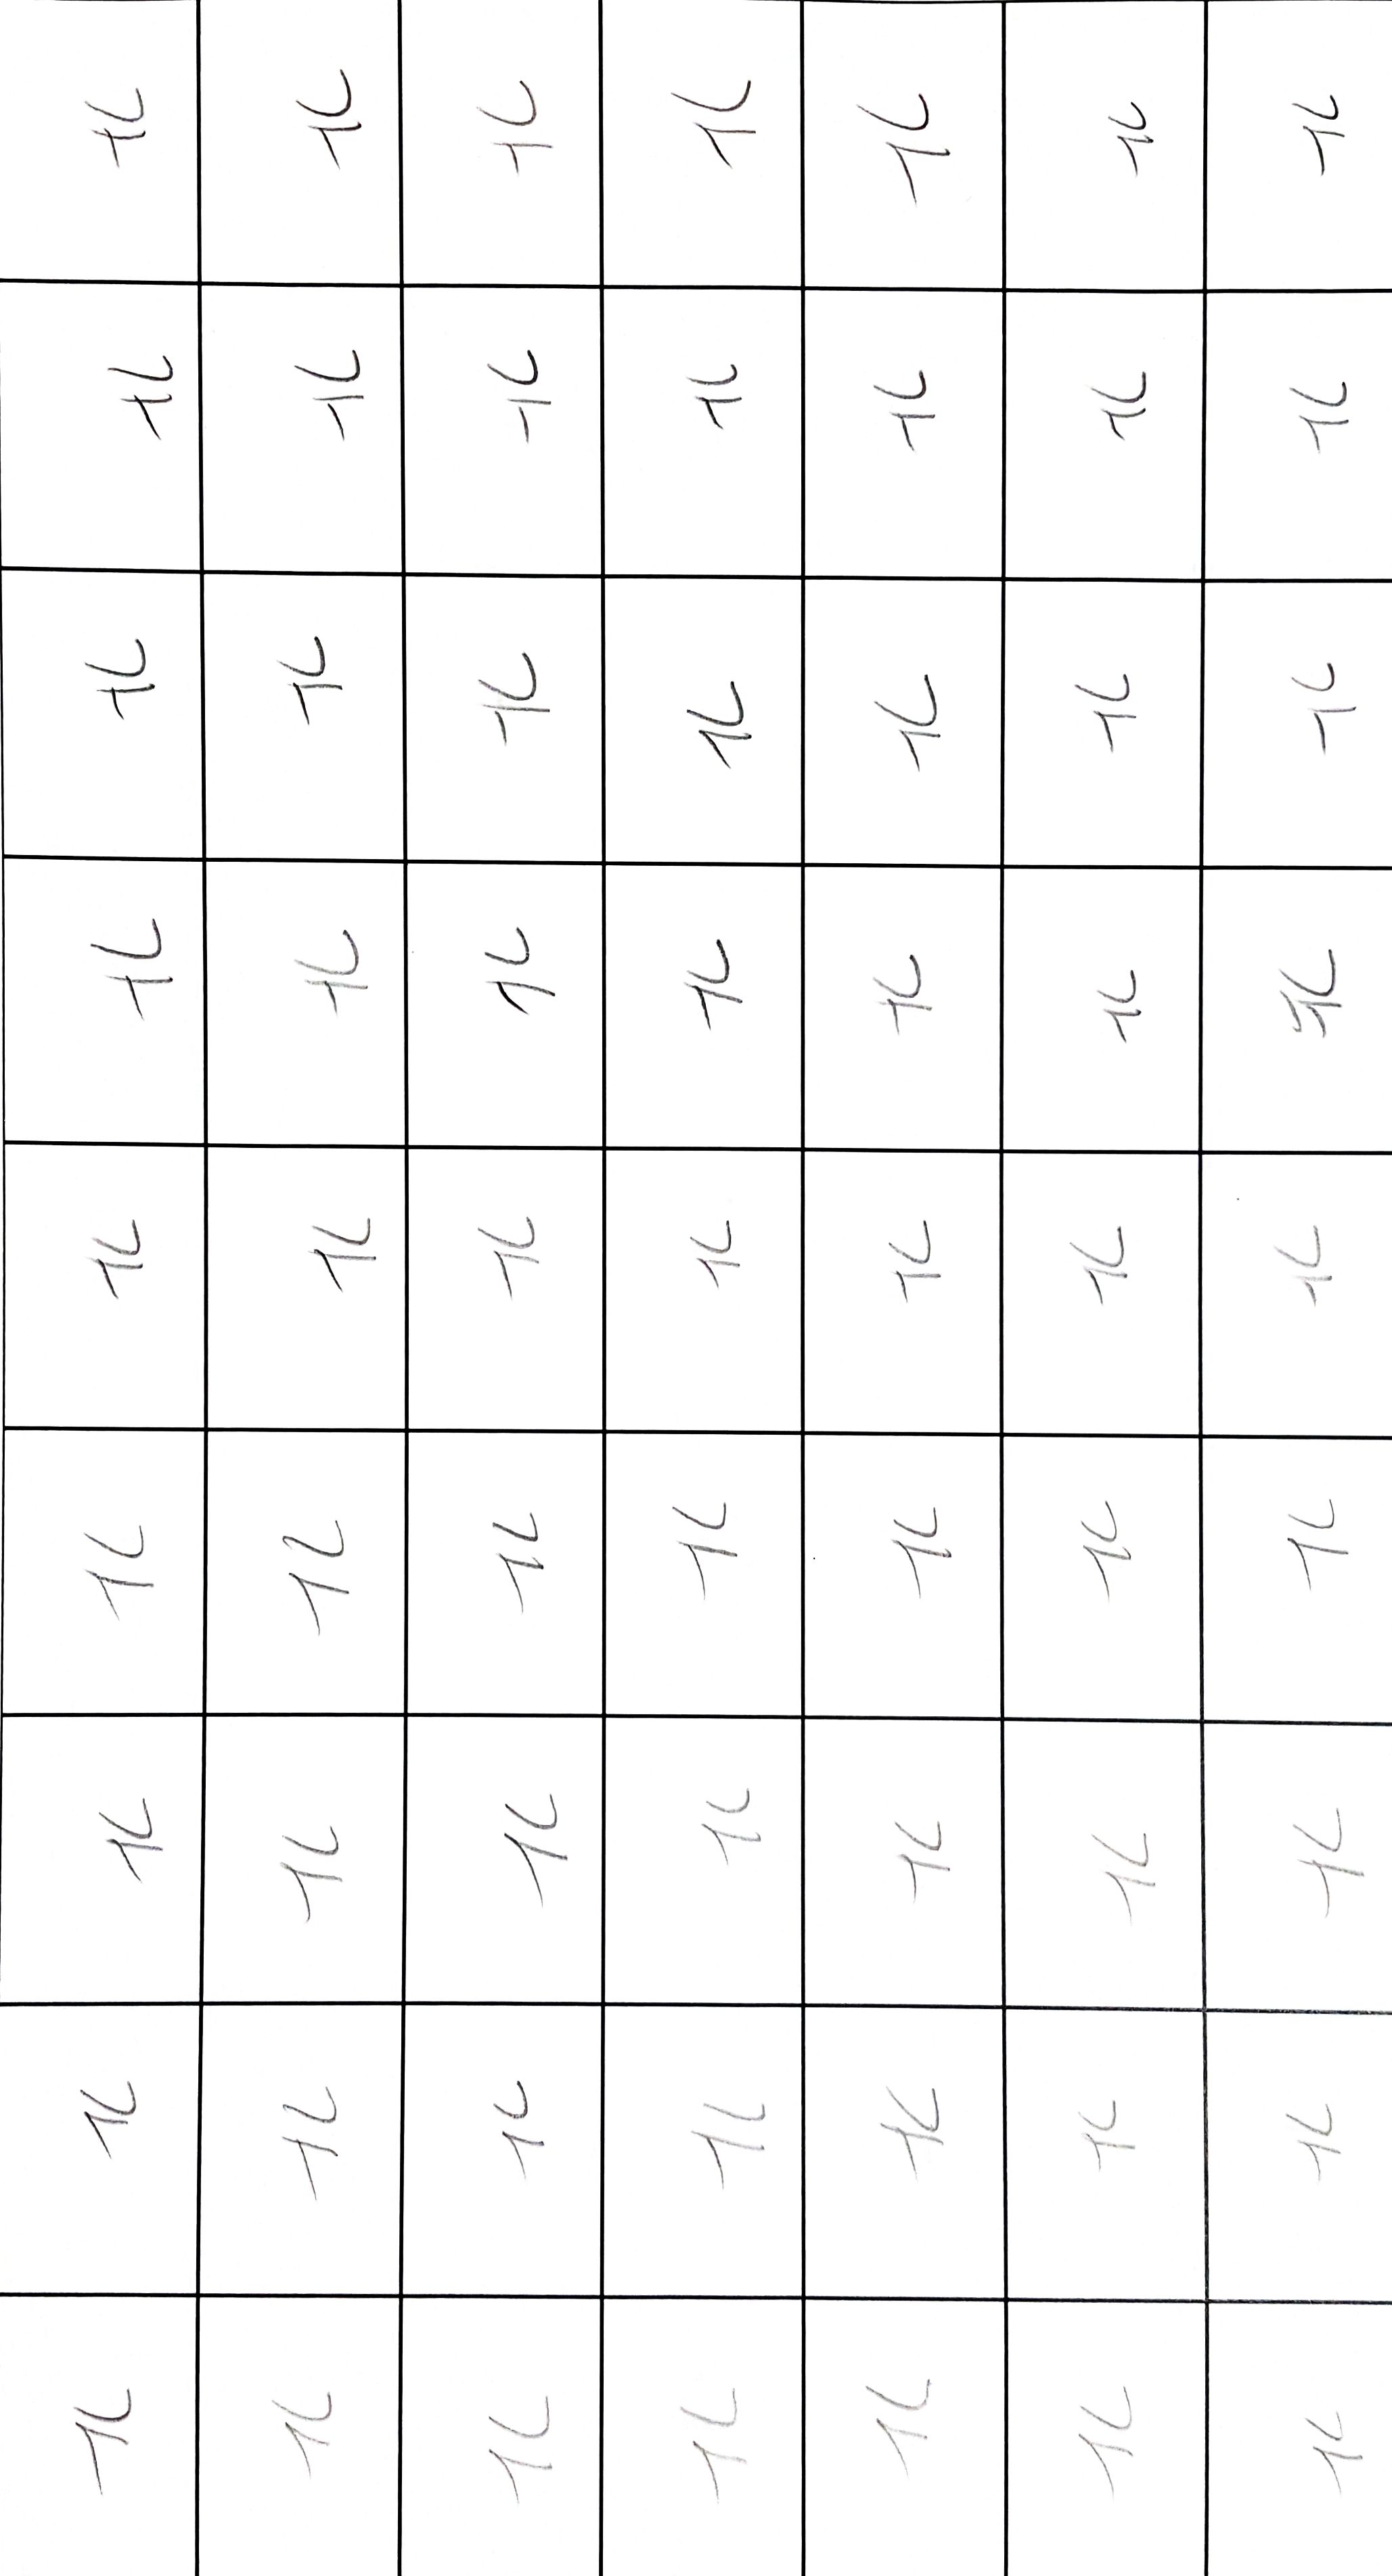 가 가 가 갸 가 가 가 가 가
가 가 가 가 가 가 가 가 가
가 가 가 가 가 가 가 가 가
가 가 가 가 가 가 가 가 가
가 가 가 가 가 가 가 가 가
가 가 가 가 가 가 가 가 가
가 가 가 가 가 가 가 가 가